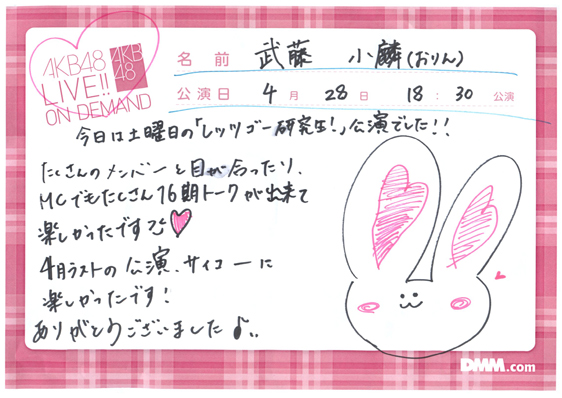 AKB48
LIVE!!
ON DEMAND
AKB
48
名前 武藤 小麟(おりん)
公演日 4月 28日 18:30 公演
今日は土曜日の「レッツゴー研究生!」公演でした!!
たくさんのメンバーと目が合ったり、
MCでもたくさん16期トークが出来て
楽しかったです
4月ラストの公演、サイコーに
楽しかったです!
ありがとうございました♪..
DMM.com